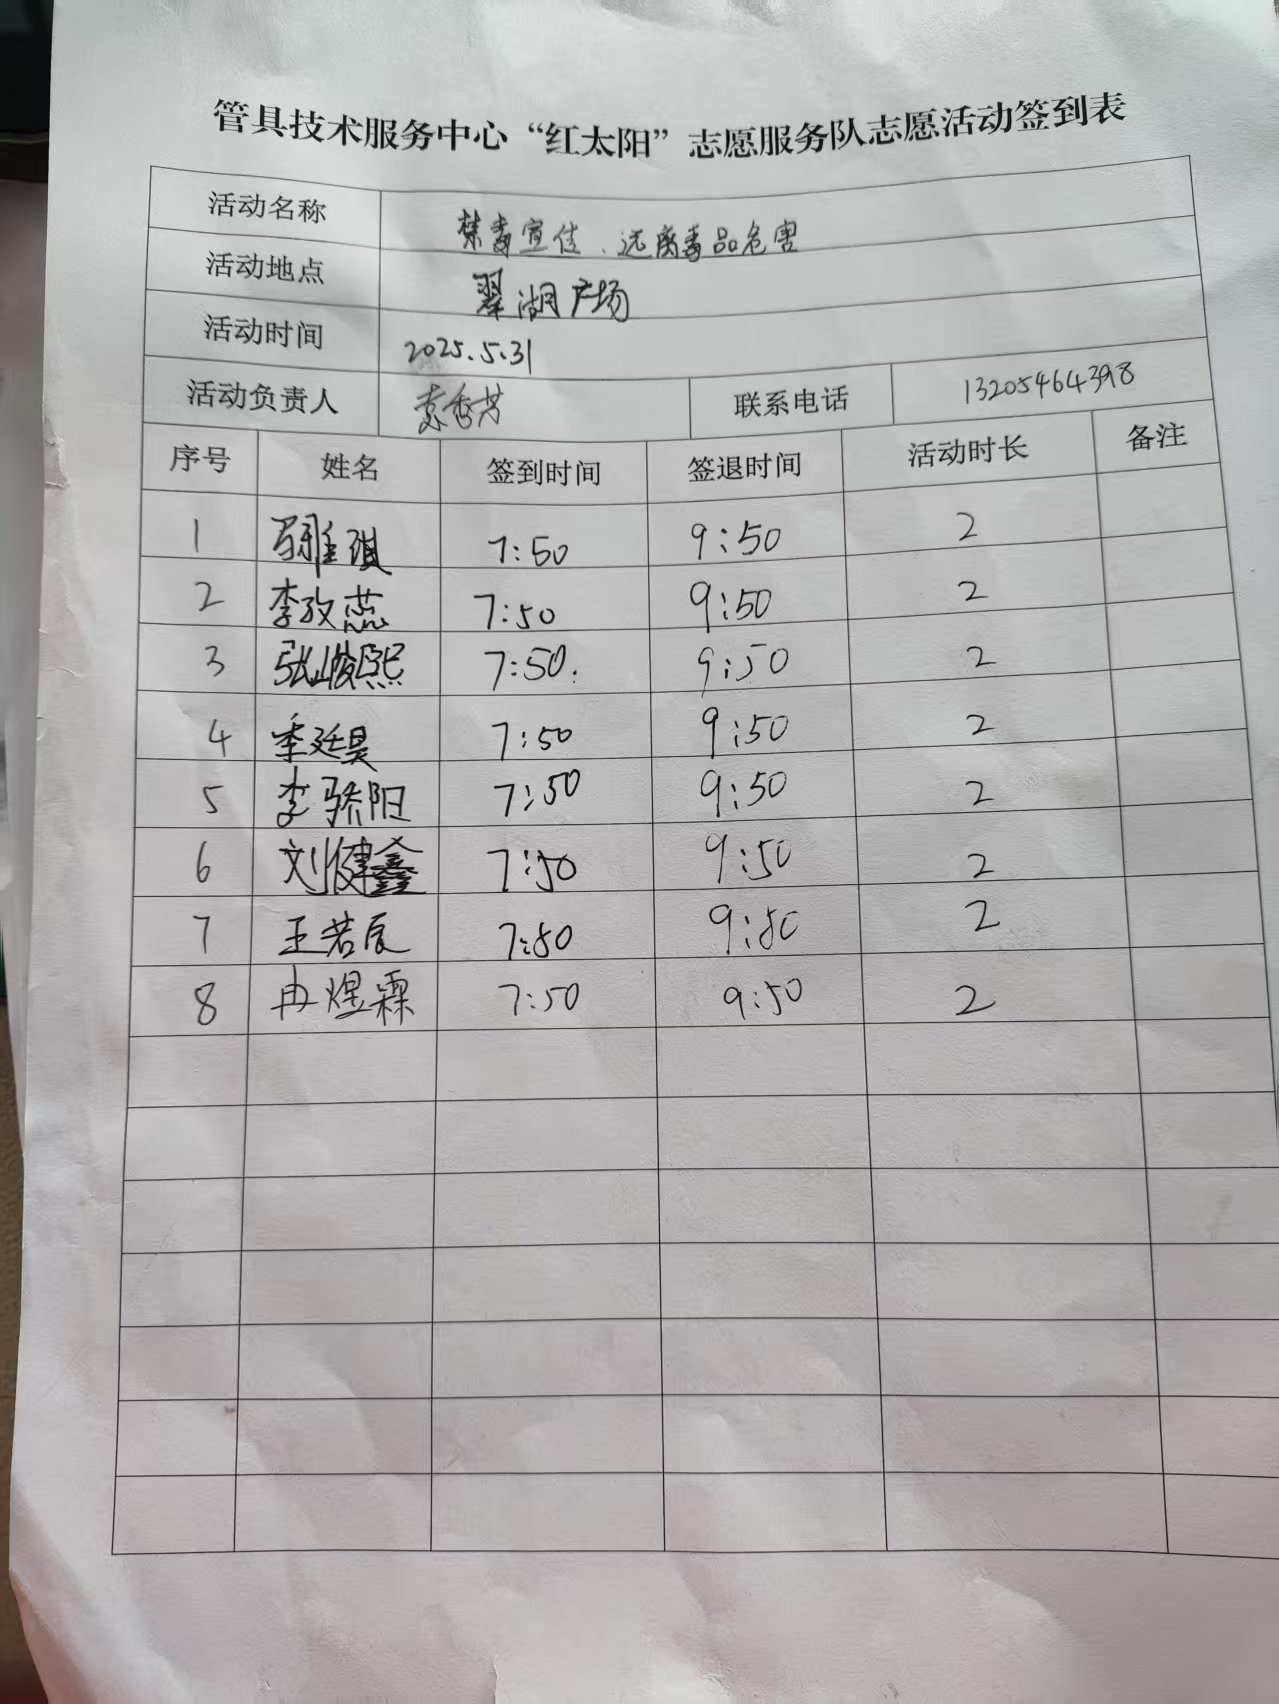 管具技术服务中心“红太阳”志愿服务队志愿活动签到表
活动名称 禁毒宣传、远离毒品危害
活动地点 翠湖广场
活动时间 2025.5.31
活动负责人 袁秀芳 联系电话 13205464398
序号 姓名 签到时间 签退时间 活动时长 备注
1 雅琪 7:50 9:50 2
2 李孜蕊 7:50 9:50 2
3 张峻熙 7:50. 9:50 2
4 季廷昊 7:50 9:50 2
5 李骄阳 7:50 9:50 2
6 刘健鑫 7:50 9:50 2
7 王若辰 7:50 9:50 2
8 冉煜霖 7:50 9:50 2